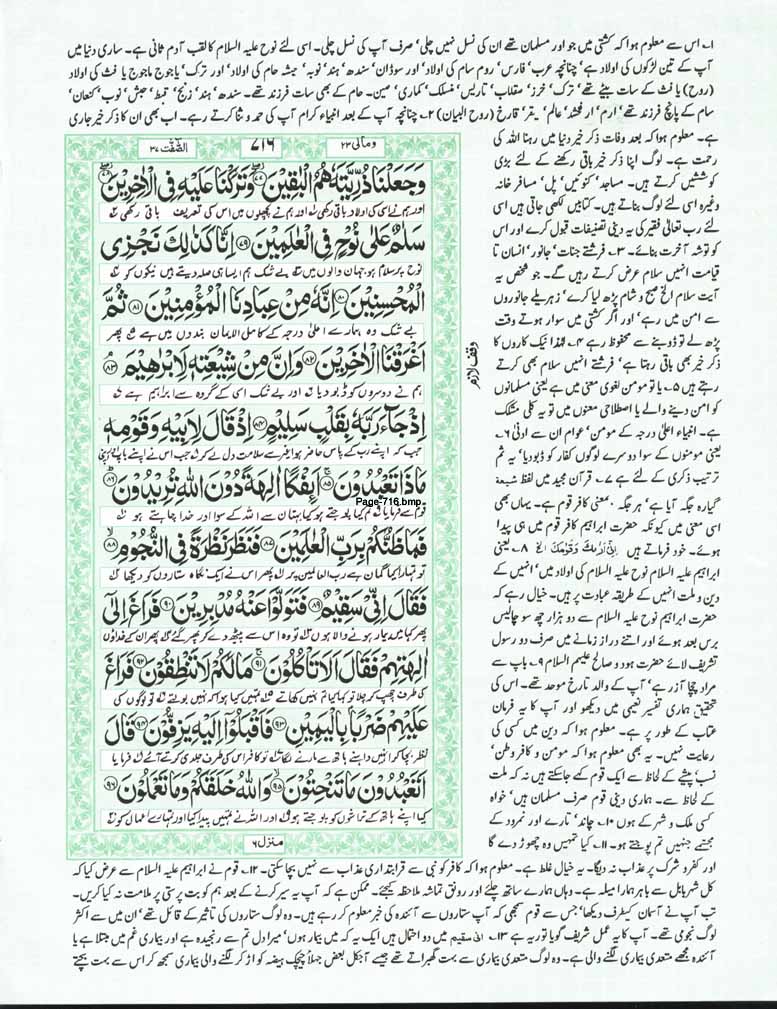 ۱۔ اس سے معلوم ہوا کہ کشتی میں جو اور مسلمان تھے ان کی نسل نہیں چلی‘ صرف آپ کی نسل چلی۔ اسی لئے نوح علیہ السلام کا لقب آدم ثانی ہے۔ ساری دنیا میں
آپ کے تین لڑکوں کی اولاد ہے‘ چنانچہ عرب‘ فارس‘ روم سام کی اولاد‘ اور سوڈان‘ سندھ‘ ہند‘ نوبہ‘ حبشہ حام کی اولاد‘ اور ترک‘ یاجوج ماجوج یا فث کی اولاد
(روح) یا فث کے سات بیٹے تھے‘ ترک‘ خرز‘ صقلاب‘ تاریس‘ منسک‘ کماری‘ صین۔ حام کے بھی سات فرزند تھے۔ سندھ‘ ہند‘ زنج‘ قبط‘ حبش‘ نوب‘ کنعان‘
سام کے پانچ فرزند تھے‘ ارم‘ ار فخشد‘ عالم‘ یفر‘ (روح البیان) ۲۔ چنانچہ آپ کے بعد انبیاء کرام آپ کی حمد و ثنا کرتے رہے۔ اب بھی ان کا ذکر خیر جاری
ہے۔ معلوم ہوا کہ بعد وفات ذکر خیر دنیا میں رہنا اللہ کی
رحمت ہے۔ لوگ اپنا ذکر خیر باقی رکھنے کے لئے بڑی
کوششیں کرتے ہیں۔ مساجد‘ کنوئیں‘ پل‘ مسافر خانہ
وغیرہ اسی لئے لوگ بناتے ہیں۔ کتابیں لکھی جاتی ہیں اسی
لئے رب تعالیٰ فقیر کی یہ دینی تصنیفات قبول کرے اور اس
کو توشہ آخرت بنائے۔ ۳۔ فرشتے جنات‘ جانور‘ انسان تا
قیامت انہیں سلام عرض کرتے رہیں گے۔ جو شخص یہ
آیت سلام الخ صبح و شام پڑھ لیا کرے‘ زہریلے جانوروں
سے امن میں رہے‘ اور اگر کشتی میں سوار ہوتے وقت
پڑھ لے تو ڈوبنے سے محفوظ رہے ۴۔ لہٰذا نیک کاروں کا
ذکر خیر بھی باقی رہتا ہے‘ فرشتے انہیں سلام بھی کرتے
رہتے ہیں ۵۔ یا تو مومن لغوی معنی میں ہے یعنی مسلمانوں
کو امن دینے والے یا اصطلاحی معنوں میں تو یہ کلی مشکک
ہے۔ انبیاء اعلیٰ درجہ کے مومن‘ عوام ان سے ادنیٰ ۶۔
یعنی مومنوں کے سوا دوسرے لوگوں کفار کو ڈبودیا‘ یہ ثم
ترتیب ذکری کے لئے ہے ۷۔ قرآن مجید میں لفظ شیعة
گیارہ جگہ آیا ہے‘ ہر جگہ بمعنی کافر قوم ہے۔ یہاں بھی
اسی معنی میں کیونکہ حضرت ابراہیم کافر قوم میں ہی پیدا
ہوئے۔ خود فرماتے ہیں اِنِّیْ اَرٰىكَ وَقَوْمَكَ الخ ۸۔ یعنی
ابراہیم علیہ السلام نوح علیہ السلام کی اولاد میں‘ انہیں کے
دین و ملت انہیں کے طریقہ عبادت پر ہیں۔ خیال رہے کہ
حضرت ابراہیم نوح علیہ السلام سے دو ہزار چھ سو چالیس
برس بعد ہوئے اور اتنے دراز زمانے میں صرف دو رسول
تشریف لائے حضرت ہود و صالح علیہم السلام ۹۔ باپ سے
مراد چچا آزر ہے‘ آپ کے والد تارخ موحد تھے۔ اس کی
تحقیق ہماری تفسیر نعیمی میں دیکھو اور آپ کا یہ فرمان
عتاب کے طور پر ہے۔ معلوم ہوا کہ دین میں کسی کی
رعایت نہیں۔ یہ بھی معلوم ہوا کہ مومن و کافر وطن‘
نسب‘ پیشے کے لحاظ سے ایک قوم کہے جاسکتے ہیں نہ کہ ملت
کے لحاظ سے۔ ہماری دینی قوم صرف مسلمان ہیں‘ خواہ
کسی ملک و شہر کے ہوں ۱۰۔ چاند‘ تارے اور نمرود کے
مجسمے جنہیں تم پوجتے ہو۔ ۱۱۔ کیا تمہیں وہ چھوڑ دے گا
وقف لازم
ومالی ۲۳
۷۱۶
الصّٰفّٰت ۳۷
وَجَعَلْنَا ذُرِّيَّتَهٗ هُمُ الْبٰقِيْنَ ﴿۷۷﴾ وَتَرَكْنَا عَلَيْهِ فِى الْاٰخِرِيْنَ ﴿۷۸﴾
اور ہم نے اسی کی اولاد باقی رکھی اور ہم نے پچھلوں میں اس کی تعریف باقی رکھی
سَلٰمٌ عَلٰى نُوْحٍ فِى الْعٰلَمِيْنَ ﴿۷۹﴾ اِنَّا كَذٰلِكَ نَجْزِى
نوح پر سلام ہو جہان والوں میں بے شک ہم ایسا ہی صلہ دیتے ہیں نیکوں کو
الْمُحْسِنِيْنَ ﴿۸۰﴾ اِنَّهٗ مِنْ عِبَادِنَا الْمُؤْمِنِيْنَ ﴿۸۱﴾ ثُمَّ
بے شک وہ ہمارے اعلیٰ درجہ کے کامل الایمان بندوں میں ہے پھر
اَغْرَقْنَا الْاٰخَرِيْنَ ﴿۸۲﴾ وَاِنَّ مِنْ شِيْعَتِهٖ لَاِبْرٰهِيْمَ ﴿۸۳﴾
ہم نے دوسروں کو ڈبو دیا اور بے شک اسی کے گروہ سے ابراہیم ہے
اِذْ جَآءَ رَبَّهٗ بِقَلْبٍ سَلِيْمٍ ﴿۸۴﴾ اِذْ قَالَ لِاَبِيْهِ وَقَوْمِهٖ
جب کہ اپنے رب کے پاس حاضر ہوا غیر سے سلامت دل لے کر جب اس نے اپنے باپ
مَاذَا تَعْبُدُوْنَ ﴿۸۵﴾ اَئِفْكًا اٰلِهَةً دُوْنَ اللّٰهِ تُرِيْدُوْنَ ﴿۸۶﴾
قوم سے فرمایا تم کیا پوجتے ہو کیا بہتان سے اللہ کے سوا اور خدا چاہتے ہو
Page-716.bmp
فَمَا ظَنُّكُمْ بِرَبِّ الْعٰلَمِيْنَ ﴿۸۷﴾ فَنَظَرَ نَظْرَةً فِى النُّجُوْمِ ﴿۸۸﴾
تو تمہارا کیا گمان ہے رب العالمین پر پھر اس نے ایک نگاہ ستاروں کو دیکھا
فَقَالَ اِنِّىْ سَقِيْمٌ ﴿۸۹﴾ فَتَوَلَّوْا عَنْهُ مُدْبِرِيْنَ ﴿۹۰﴾ فَرَاغَ اِلٰٓى
پھر کہا میں بیمار ہونے والا ہوں تو وہ اس سے پیٹھ دے کر پھر گئے پھر ان کے خداؤں
اٰلِهَتِهِمْ فَقَالَ اَلَا تَاْكُلُوْنَ ﴿۹۱﴾ مَا لَكُمْ لَا تَنْطِقُوْنَ ﴿۹۲﴾ فَرَاغَ
کی طرف چھپ کر چلا تو کہا کیا تم نہیں کھاتے تمہیں کیا ہوا کہ نہیں بولتے تو لوگوں کی
عَلَيْهِمْ ضَرْبًا بِالْيَمِيْنِ ﴿۹۳﴾ فَاَقْبَلُوْٓا اِلَيْهِ يَزِفُّوْنَ ﴿۹۴﴾ قَالَ
نظر بچا کر انہیں داہنے ہاتھ سے مارنے لگا تو کافر اس کی طرف جلدی کرتے آئے فرمایا
اَتَعْبُدُوْنَ مَا تَنْحِتُوْنَ ﴿۹۵﴾ وَاللّٰهُ خَلَقَكُمْ وَمَا تَعْمَلُوْنَ ﴿۹۶﴾
کیا اپنے ہاتھ کے تراشوں کو پوجتے ہو اور اللہ نے تمہیں پیدا کیا اور تمہارے اعمال کو
منزل ۶
اور کفر و شرک پر عذاب نہ دیگا۔ یہ خیال غلط ہے۔ معلوم ہوا کہ کافر کو نبی سے قرابتداری عذاب سے نہیں بچا سکتی۔ ۱۲۔ قوم نے ابراہیم علیہ السلام سے عرض کیا کہ
کل شہر بابل سے باہر ہمارا میلہ ہے۔ وہاں ہمارے ساتھ چلئے اور رونق تماشہ ملاحظہ کیجئے۔ ممکن ہے کہ آپ یہ سیر کرنے کے بعد ہم کو بت پرستی پر ملامت نہ کیا کریں۔
تب آپ نے آسمان کیطرف دیکھا‘ جس سے قوم سمجھی کہ آپ ستاروں سے آئندہ کی خبر معلوم کر رہے ہیں۔ وہ لوگ ستاروں کی تاثیر کے قائل تھے‘ ان میں سے اکثر
لوگ نجومی تھے۔ آپ کا یہ عمل شریف گویا توریہ ہے ۱۳۔ انی سقیم میں دو احتمال ہیں ایک یہ کہ میں بیمار ہوں‘ میرا دل تم سے رنجیدہ ہے اور بیماری غم میں مبتلا ہے یا
آئندہ مجھے متعدی بیماری لگنے والی ہے۔ وہ لوگ متعدی بیماری سے بہت گھبراتے تھے جیسے آجکل بعض جہلا چیچک ہیضہ کو اڑ کر لگنے والی بیماری سمجھ کر اس سے بہت بچتے